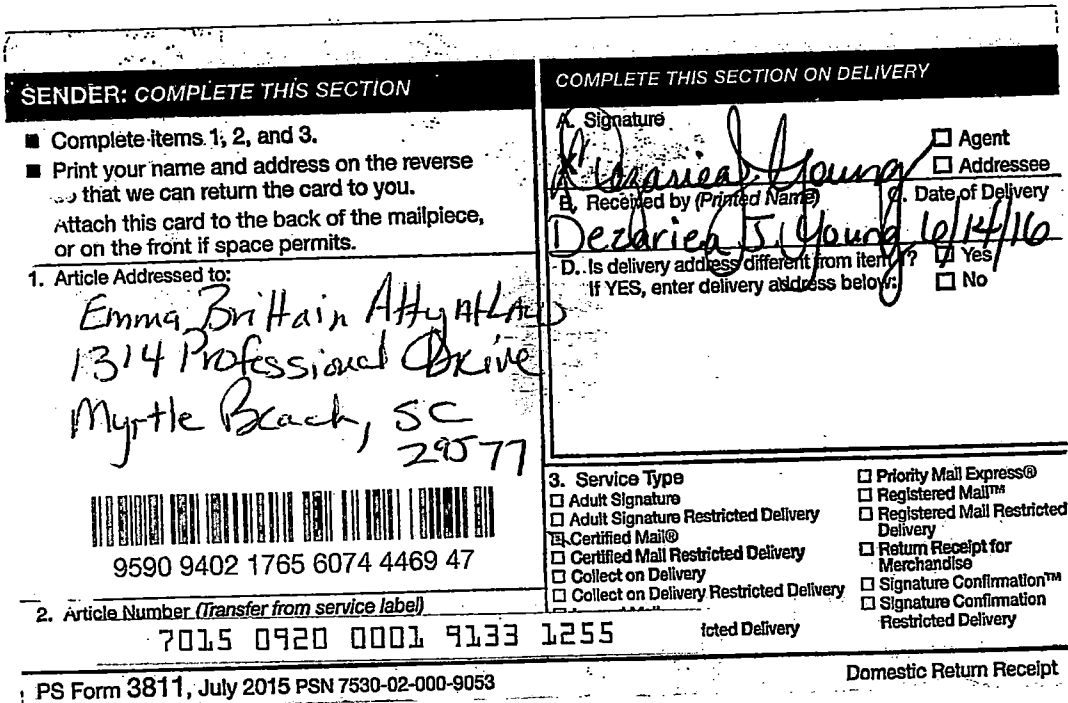 SENDER: COMPLETE THIS SECTION
■ Complete items 1, 2, and 3.
■ Print your name and address on the reverse
so that we can return the card to you.
Attach this card to the back of the mailpiece,
or on the front if space permits.
1. Article Addressed to:
Emma Brittain Atty At Law
1314 Professional Drive
Myrtle Beach, SC
29577
9590 9402 1765 6074 4469 47
2. Article Number (Transfer from service label)
7015 0920 0001 9133 1255
COMPLETE THIS SECTION ON DELIVERY
A. Signature
Dezariea J. Young
☐ Agent
☐ Addressee
B. Received by (Printed Name)
C. Date of Delivery
Dezariea J. Young 6/14/16
D. Is delivery address different from item 1? ☐ Yes
If YES, enter delivery address below: ☐ No
3. Service Type
☐ Adult Signature
☐ Adult Signature Restricted Delivery
☒ Certified Mail®
☐ Certified Mail Restricted Delivery
☐ Collect on Delivery
☐ Collect on Delivery Restricted Delivery
icted Delivery
☐ Priority Mail Express®
☐ Registered Mail™
☐ Registered Mail Restricted
Delivery
☐ Return Receipt for
Merchandise
☐ Signature Confirmation™
☐ Signature Confirmation
Restricted Delivery
PS Form 3811, July 2015 PSN 7530-02-000-9053
Domestic Return Receipt